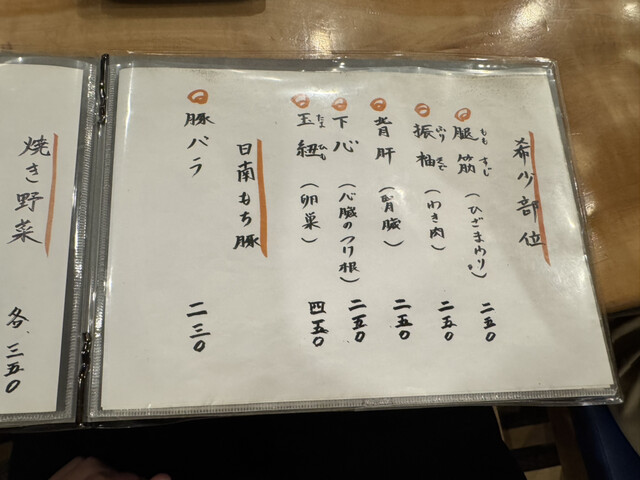 希少部位
腿筋（ひざまわり） 二五〇
もも すじ
振袖（わき肉） 二五〇
ふり そで
背肝（腎臓） 二五〇
下心（心臓のつけ根） 二五〇
玉紐（卵巣） 四五〇
たま ひも
日南もち豚
豚バラ 二三〇
焼き野菜 各.三五〇